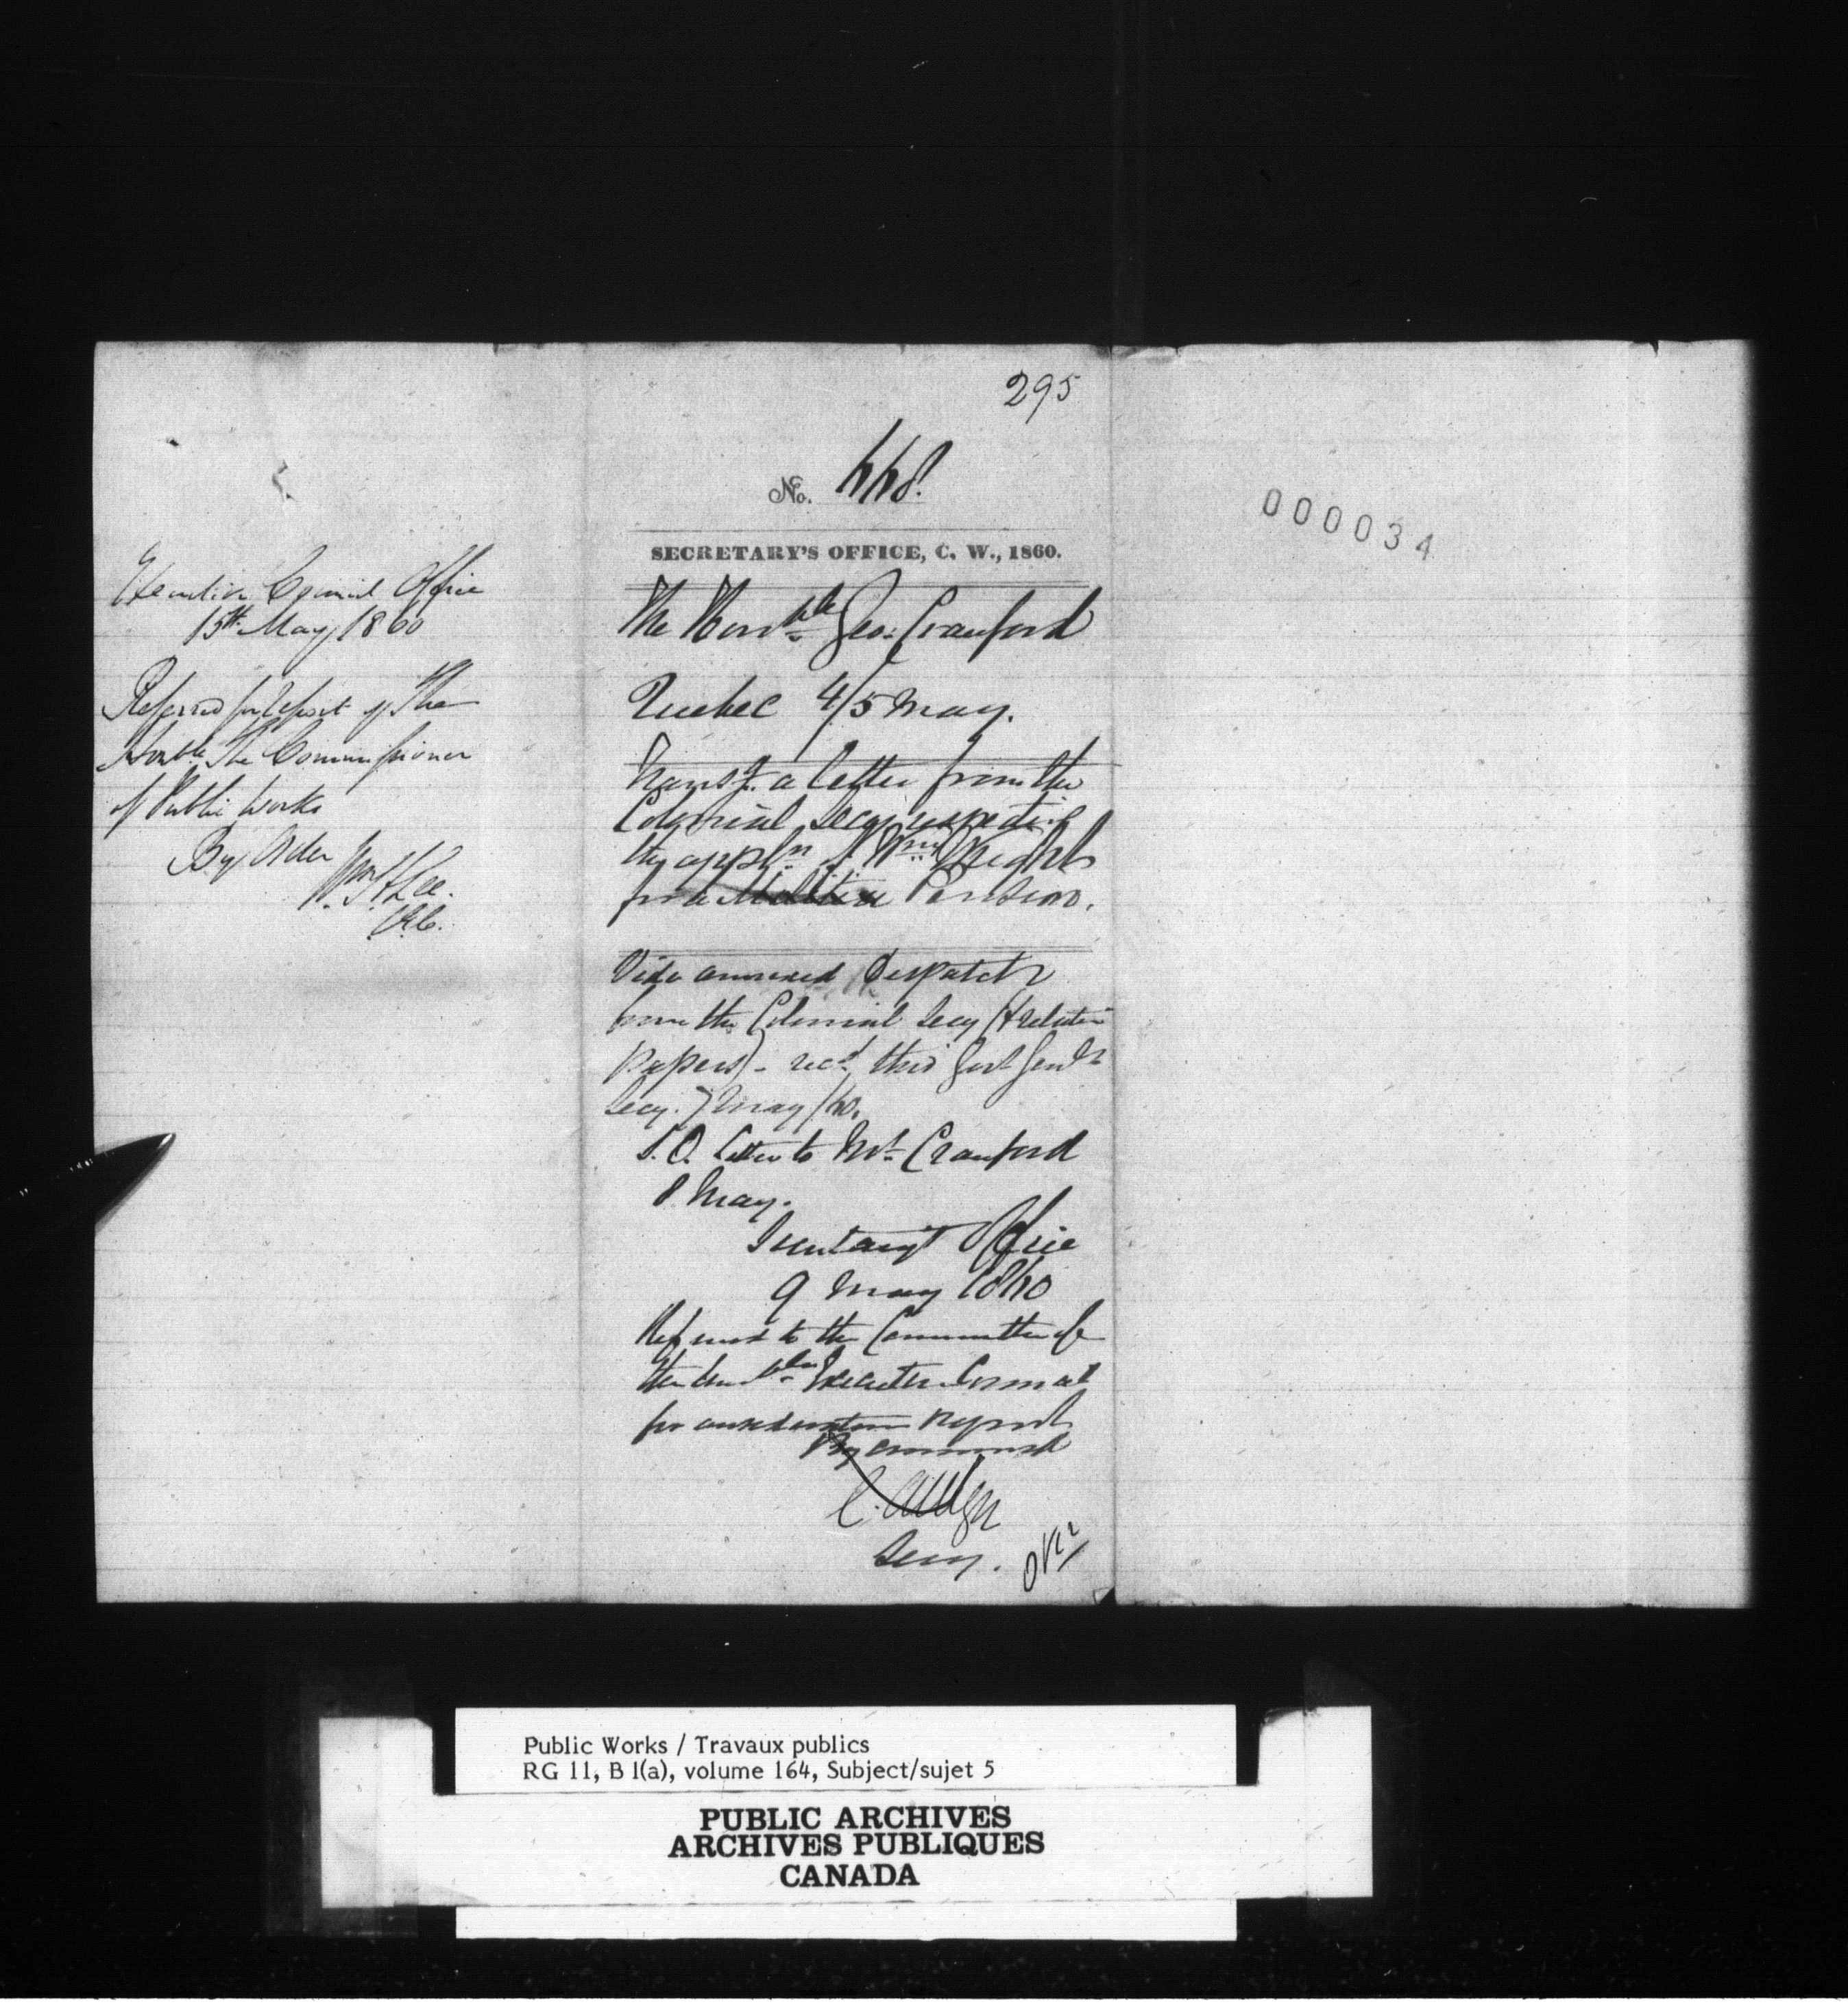 295
No. 668.
000034
SECRETARY'S OFFICE, C. W., 1860.
The Honble Geo: Crawford
Quebec 4/5 May.
Transg. a letter from the
Colonial Secy respecting
the appln of Wm
for a Pension.
Vide annexed Despatch
from the Colonial Secy (& relative
papers) - recd. thro' Govr Genls
Secy. 7 May /60.
S.O. letter to Mr. Crawford
8 May.
Secretary's Office
9 May 1860
Referred to the Committee of
the Honble Executive Council
for consideration & report
By command
C. Alleyn
Secy.
Executive Council Office
15th May 1860
Referred for Report of the
Honble. The Commissioner
of Public Works
By Order
Wm. H. Lee.
C.E.C.
Public Works / Travaux publics
RG 11, B 1(a), volume 164, Subject/sujet 5
PUBLIC ARCHIVES
ARCHIVES PUBLIQUES
CANADA